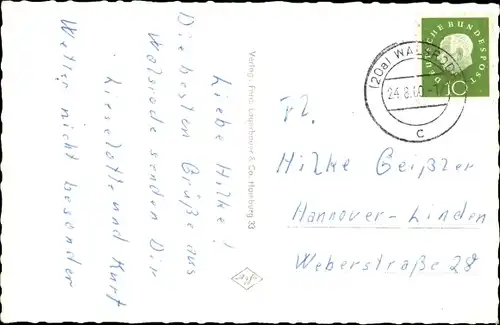 Liebe Hilke!
Die besten Grüße aus
Walsrode senden Dir
Lieselotte und Kurt
Wetter nicht besonder
Verlag: Ferd. Lagerbauer & Co. Hamburg 33
DEUTSCHE BUNDESPOST
10
(20a) WALSRODE
24.8.60
c
Frl.
Hilke Geißler
Hannover-Linden
Weberstraße 28